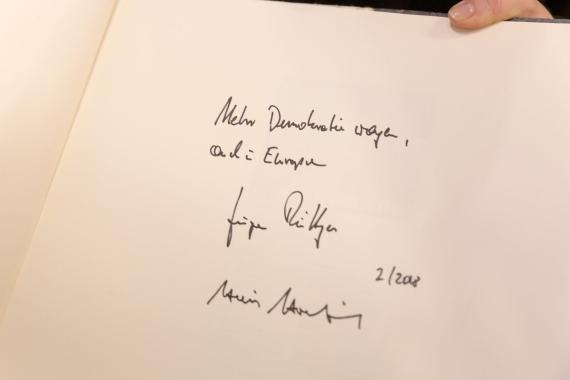 Mehr Demokratie wagen,
auch in Europa
Jürgen Rüttgers
2/2018